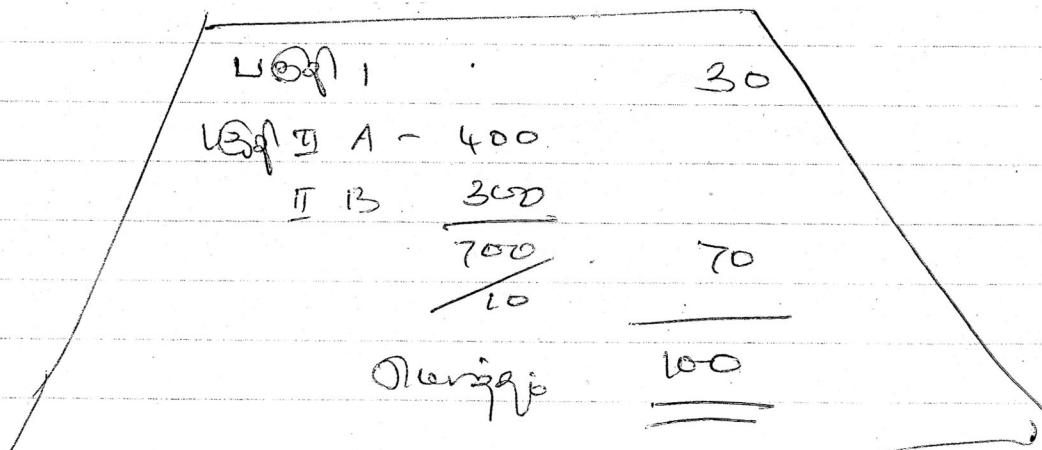 பகுதி I 30
பகுதி II A - 400
II B 300
700 70
10
மொத்தம் 100